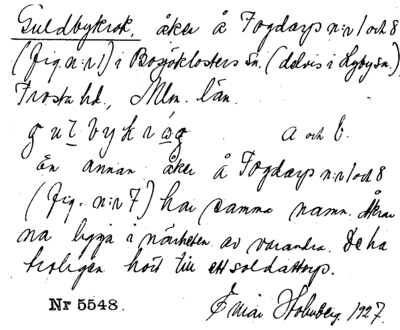 Guldbykrok, åker å Fogdarp n:r 1 och 8
(fig. n:r 1) i Bosjöklosters sn. (delvis i Hyby sn.),
Frosta hd., Mlm. län.
gulbykrog a och b.
En annan åker å Fogdarp n:r 1 och 8
(fig. n:r 7) har samma namn. Åkrar
na ligga i närheten av varandra. De ha
troligen hört till ett soldattorp.
Nr 5548. Holmberg. 1927.